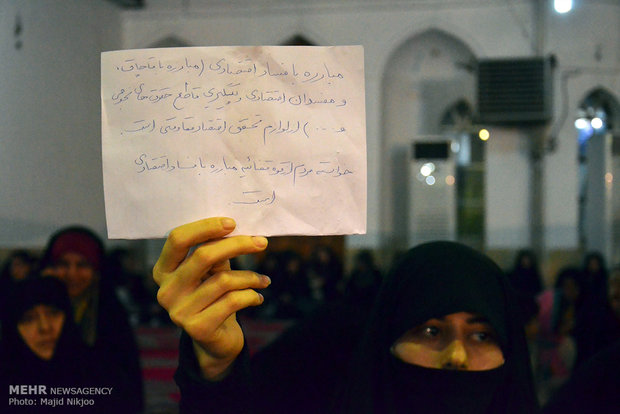 مبارزه با فساد اقتصادی (مبارزه با قاچاق،
و مفسدان اقتصادی و پیگیری قاطع حقوق های نجومی
و ...) از لوازم تحقق اقتصاد مقاومتی است.
خواسته مردم از قوه قضائیه مبارزه با فساد اقتصادی
است
MEHR NEWSAGENCY
Photo: Majid Nikjoo